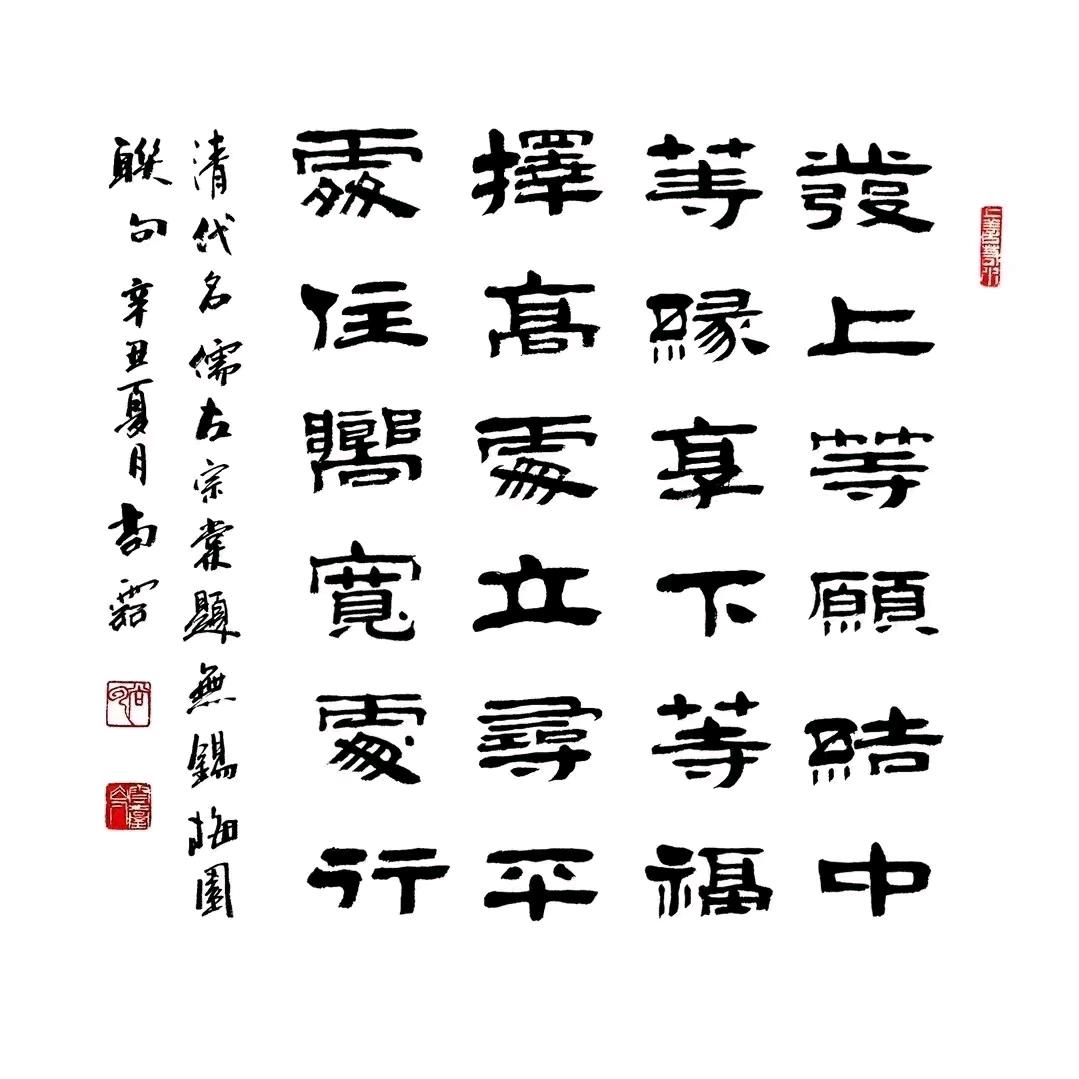 上善若水
發上等願結中
等緣享下等福
擇高處立尋平
處住嚮寬處行
清代名儒左宗棠題無錫梅園
聯句辛丑夏月尚